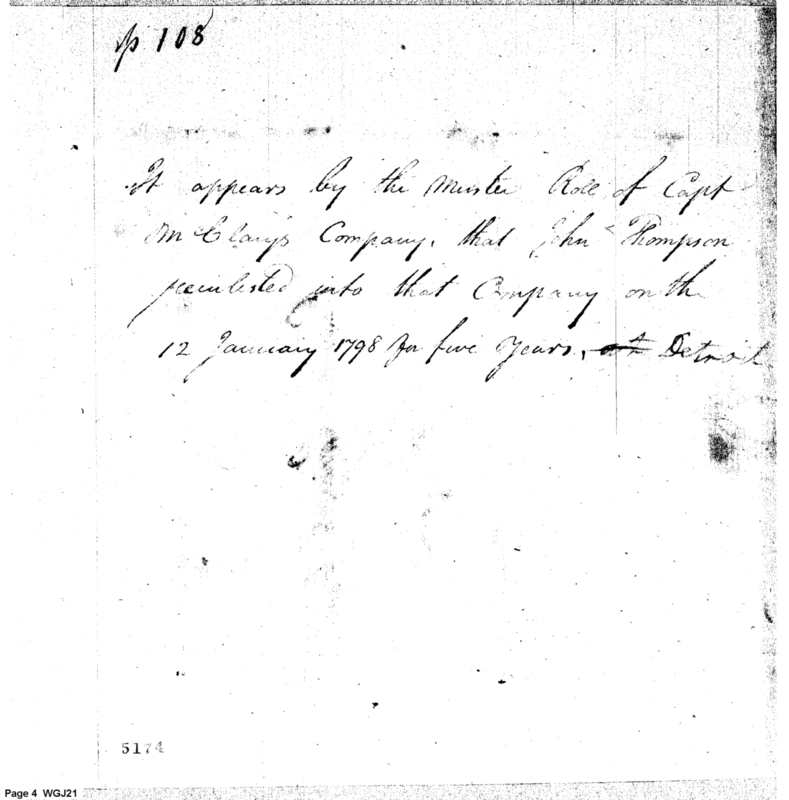 p 108
It appears by the Muster Roll of Capt
McClary's Company, that John Thompson
reenlisted into that Company on the
12 January 1798 for five Years, Detroit
5174
Page 4 WGJ21